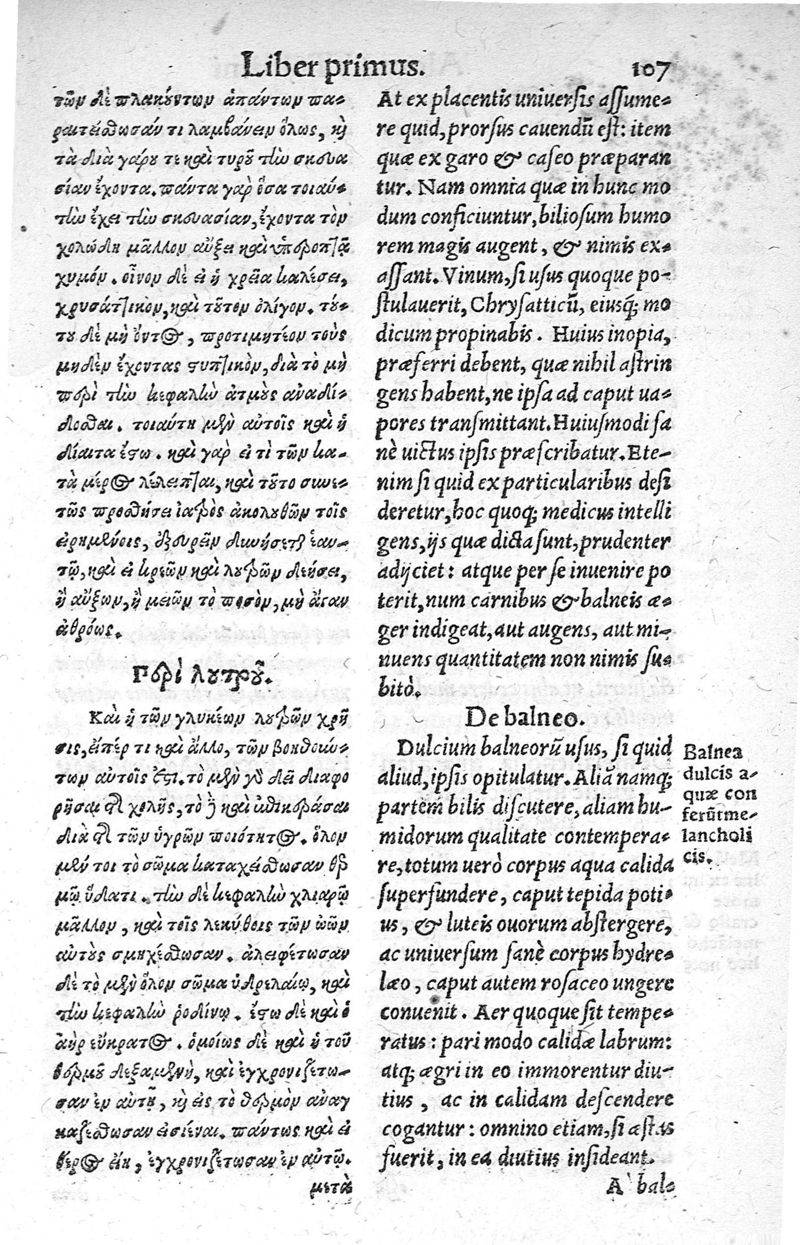 Liber primus. 107
τῶν δὲ πλακούντων ἁπάντων πα-
ραιτείσθωσάν τι λαμβάνειν ὅλως, καὶ
τὰ διὰ γάρου τε καὶ τυροῦ τὴν σκευα
σίαν ἔχοντα. πάντα γὰρ ὅσα τοιαύ-
την ἔχει τὴν σκευασίαν, ἔχοντα τὸν
χολώδη μᾶλλον αὔξει καὶ ὑπεροπτᾷ
χυμόν. οἶνον δὲ εἰ ἡ χρεία καλέσει,
χρυσάττικον, καὶ τοῦτον ὀλίγον. τού-
του δὲ μὴ ὄντος, προτιμητέον τοὺς
μηδὲν ἔχοντας στυπτικὸν, διὰ τὸ μὴ
περὶ τὴν κεφαλὴν ἀτμοὺς ἀναδί-
δοσθαι. τοιαύτη μὲν αὐτοῖς καὶ ἡ
δίαιτα ἔστω. καὶ γὰρ εἰ τὶ τῶν κα-
τὰ μέρος λέλειπται, καὶ τοῦτο συνε-
τῶς προσθήσει ἰατρὸς ἀκολουθῶν τοῖς
εἰρημένοις, ἐξευρεῖν δυνήσεται ἑαυ-
τῷ, καὶ εἰ κρεῶν καὶ λουτρῶν δεήσει,
ἢ αὔξων, ἢ μειῶν τὸ ποσὸν, μὴ ἄγαν
ἀθρόως.
Περὶ λουτροῦ.
Καὶ ἡ τῶν γλυκέων λουτρῶν χρῆ
σις, εἴπέρ τι καὶ ἄλλο, τῶν βοηθούν-
των αὐτοῖς ἐστι. τὸ μὲν γὰρ δεῖ διαφο
ρῆσαι τῆς χολῆς, τὸ δὲ καὶ ἐπικεράσαι
διὰ τῆς τῶν ὑγρῶν ποιότητος. ὅλον
μέν τοι τὸ σῶμα καταχείσθωσαν θερ
μῷ ὕδατι. τὴν δὲ κεφαλὴν χλιαρῷ
μᾶλλον, καὶ τοῖς λεκύθοις τῶν ὠῶν
αὐτοὺς σμηχέσθωσαν. ἀλειφέτωσαν
δὲ τὸ μὲν ὅλον σῶμα ὑδρελαίῳ, καὶ
τὴν κεφαλὴν ῥοδίνῳ. ἔστω δὲ καὶ ὁ
ἀὴρ εὔκρατος. ὁμοίως δὲ καὶ ἡ τοῦ
θερμοῦ δεξαμενὴ, καὶ ἐγχρονιζέτω-
σαν ἐν αὐτῇ, καὶ εἰς τὸ θερμὸν ἀναγ
καζέσθωσαν εἰσιέναι. πάντως καὶ εἰ
θέρος εἴη, ἐγχρονιζέτωσαν ἐν αὐτῷ.
μετὰ
At ex placentis universis assume-
re quid, prorsus cauendũ est: item
quæ ex garo & caseo præparan
tur. Nam omnia quæ in hunc mo
dum conficiuntur, biliosum humo
rem magis augent, & nimis ex-
assant. Vinum, si usus quoque po-
stulauerit, Chrysatticũ, eiusq; mo
dicum propinabis. Huius inopia,
præferri debent, quæ nihil astrin
gens habent, ne ipsa ad caput ua-
pores transmittant. Huiusmodi sa
nè uictus ipsis præscribatur. Ete-
nim si quid ex particularibus desi
deretur, hoc quoq; medicus intelli
gens, ijs quæ dicta sunt, prudenter
adijciet: atque per se inuenire po
terit, num carnibus & balneis æ-
ger indigeat, aut augens, aut mi-
nuens quantitatem non nimis su-
bitò.
De balneo.
Dulcium balneorũ usus, si quid
aliud, ipsis opitulatur. Aliã namq;
partem bilis discutere, aliam hu-
midorum qualitate contempera-
re, totum uerò corpus aqua calida
superfundere, caput tepida poti-
us, & luteis ouorum abstergere,
ac universum sanè corpus hydre-
læo, caput autem rosaceo ungere
conuenit. Aer quoque sit tempe-
ratus: pari modo calidæ labrum:
atq; ægri in eo immorentur diu-
tius, ac in calidam descendere
cogantur: omnino etiam, si æstas
fuerit, in ea diutius insideant.
A bal-
Balnea
dulcis a-
quæ con
ferũt me-
lancholi
cis.